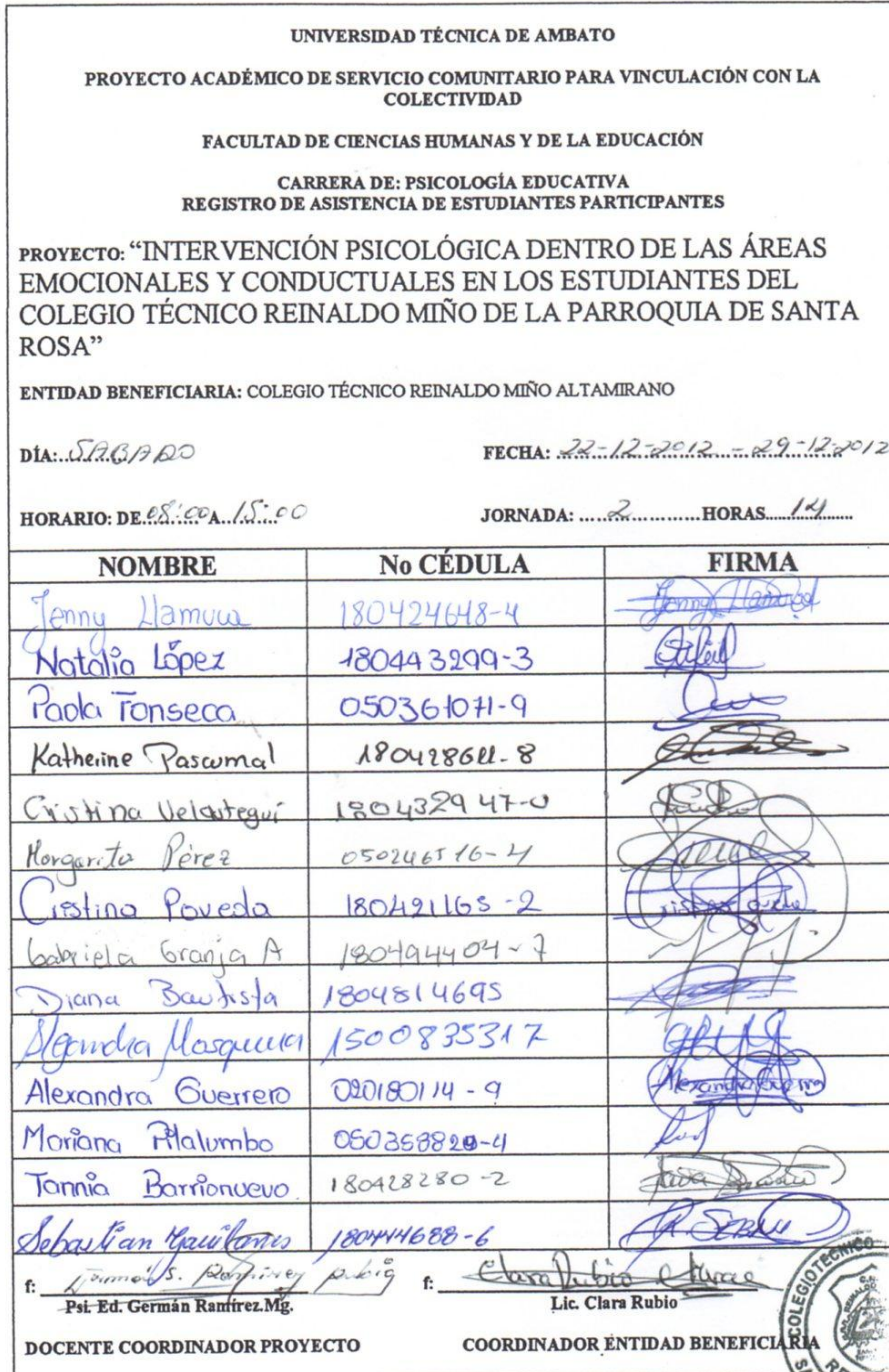 UNIVERSIDAD TÉCNICA DE AMBATO
PROYECTO ACADÉMICO DE SERVICIO COMUNITARIO PARA VINCULACIÓN CON LA
COLECTIVIDAD
FACULTAD DE CIENCIAS HUMANAS Y DE LA EDUCACIÓN
CARRERA DE: PSICOLOGÍA EDUCATIVA
REGISTRO DE ASISTENCIA DE ESTUDIANTES PARTICIPANTES
PROYECTO: “INTERVENCIÓN PSICOLÓGICA DENTRO DE LAS ÁREAS
EMOCIONALES Y CONDUCTUALES EN LOS ESTUDIANTES DEL
COLEGIO TÉCNICO REINALDO MIÑO DE LA PARROQUIA DE SANTA
ROSA”
ENTIDAD BENEFICIARIA: COLEGIO TÉCNICO REINALDO MIÑO ALTAMIRANO
DÍA: SABADO FECHA: 22-12-2012 - 29-12-2012
HORARIO: DE 08:00 A 15:00 JORNADA: 2 HORAS 14
NOMBRE No CÉDULA FIRMA
Jenny Llamuca 180424648-4 Jenny Llamuca
Natalia López 180443299-3
Paola Fonseca 050361071-9
Katherine Pascumal 180428611-8
Cristina Velastegui 180432947-0
Margarita Pérez 050246516-4
Cristina Poveda 180421165-2
Gabriela Granja A 180494404-7
Diana Bautista 1804814695
Alejandra Mosquera 1500835317
Alexandra Guerrero 020180114-9 Alexandra Guerrero
Mariana Pilalumbo 050358820-4
Tannia Barrionuevo 180428280-2
Sebastian 180444688-6
f: f: Clara Rubio
Psi. Ed. Germán Ramírez.Mg. Lic. Clara Rubio
DOCENTE COORDINADOR PROYECTO COORDINADOR ENTIDAD BENEFICIARIA
COLEGIO TECNICO